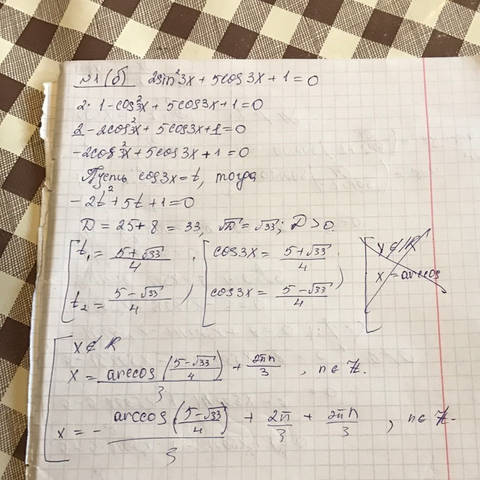 N1 (б) 2sin²3x + 5cos3x + 1 = 0
2·1 - cos²3x + 5cos3x + 1 = 0
2 - 2cos²3x + 5cos3x + 1 = 0
-2cos²3x + 5cos3x + 1 = 0
Пусть cos3x = t, тогда
-2t² + 5t + 1 = 0
D = 25 + 8 = 33, √D = √33; D > 0
t₁ = (5 + √33)/4, cos3x = (5 + √33)/4
x ∉ R
x = arccos
t₂ = (5 - √33)/4; cos3x = (5 - √33)/4
x ∉ R
x = arccos((5 - √33)/4)/3 + 2πn/3, n ∈ Z.
x = - arccos((5 - √33)/4)/3 + 2π/3 + 2πn/3, n ∈ Z.